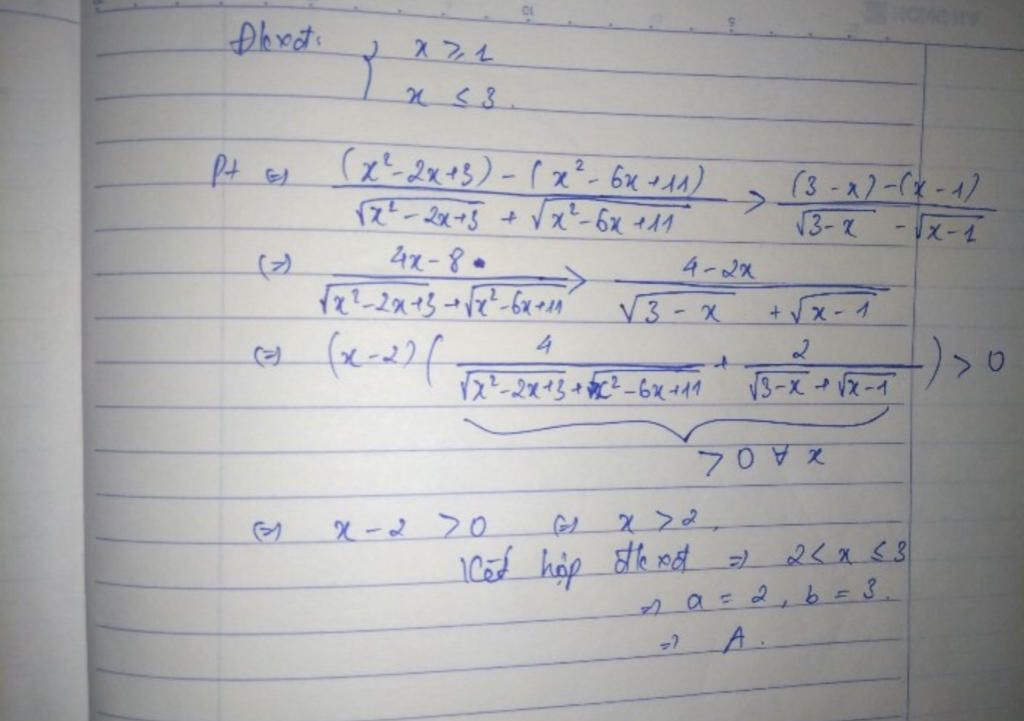 Đkxđ: { x ≥ 1
x ≤ 3.
Pt ⇔ ((x² - 2x + 3) - (x² - 6x + 11)) / (√(x² - 2x + 3) + √(x² - 6x + 11)) > ((3 - x) - (x - 1)) / (√(3 - x) - √(x - 1))
⇔ (4x - 8) / (√(x² - 2x + 3) + √(x² - 6x + 11)) > (4 - 2x) / (√(3 - x) + √(x - 1))
⇔ (x - 2) ( 4 / (√(x² - 2x + 3) + √(x² - 6x + 11)) + 2 / (√(3 - x) + √(x - 1)) ) > 0
> 0 ∀ x
⇔ x - 2 > 0 ⇔ x > 2.
Kết hợp đkxđ ⇒ 2 < x ≤ 3
⇒ a = 2, b = 3.
⇒ A.